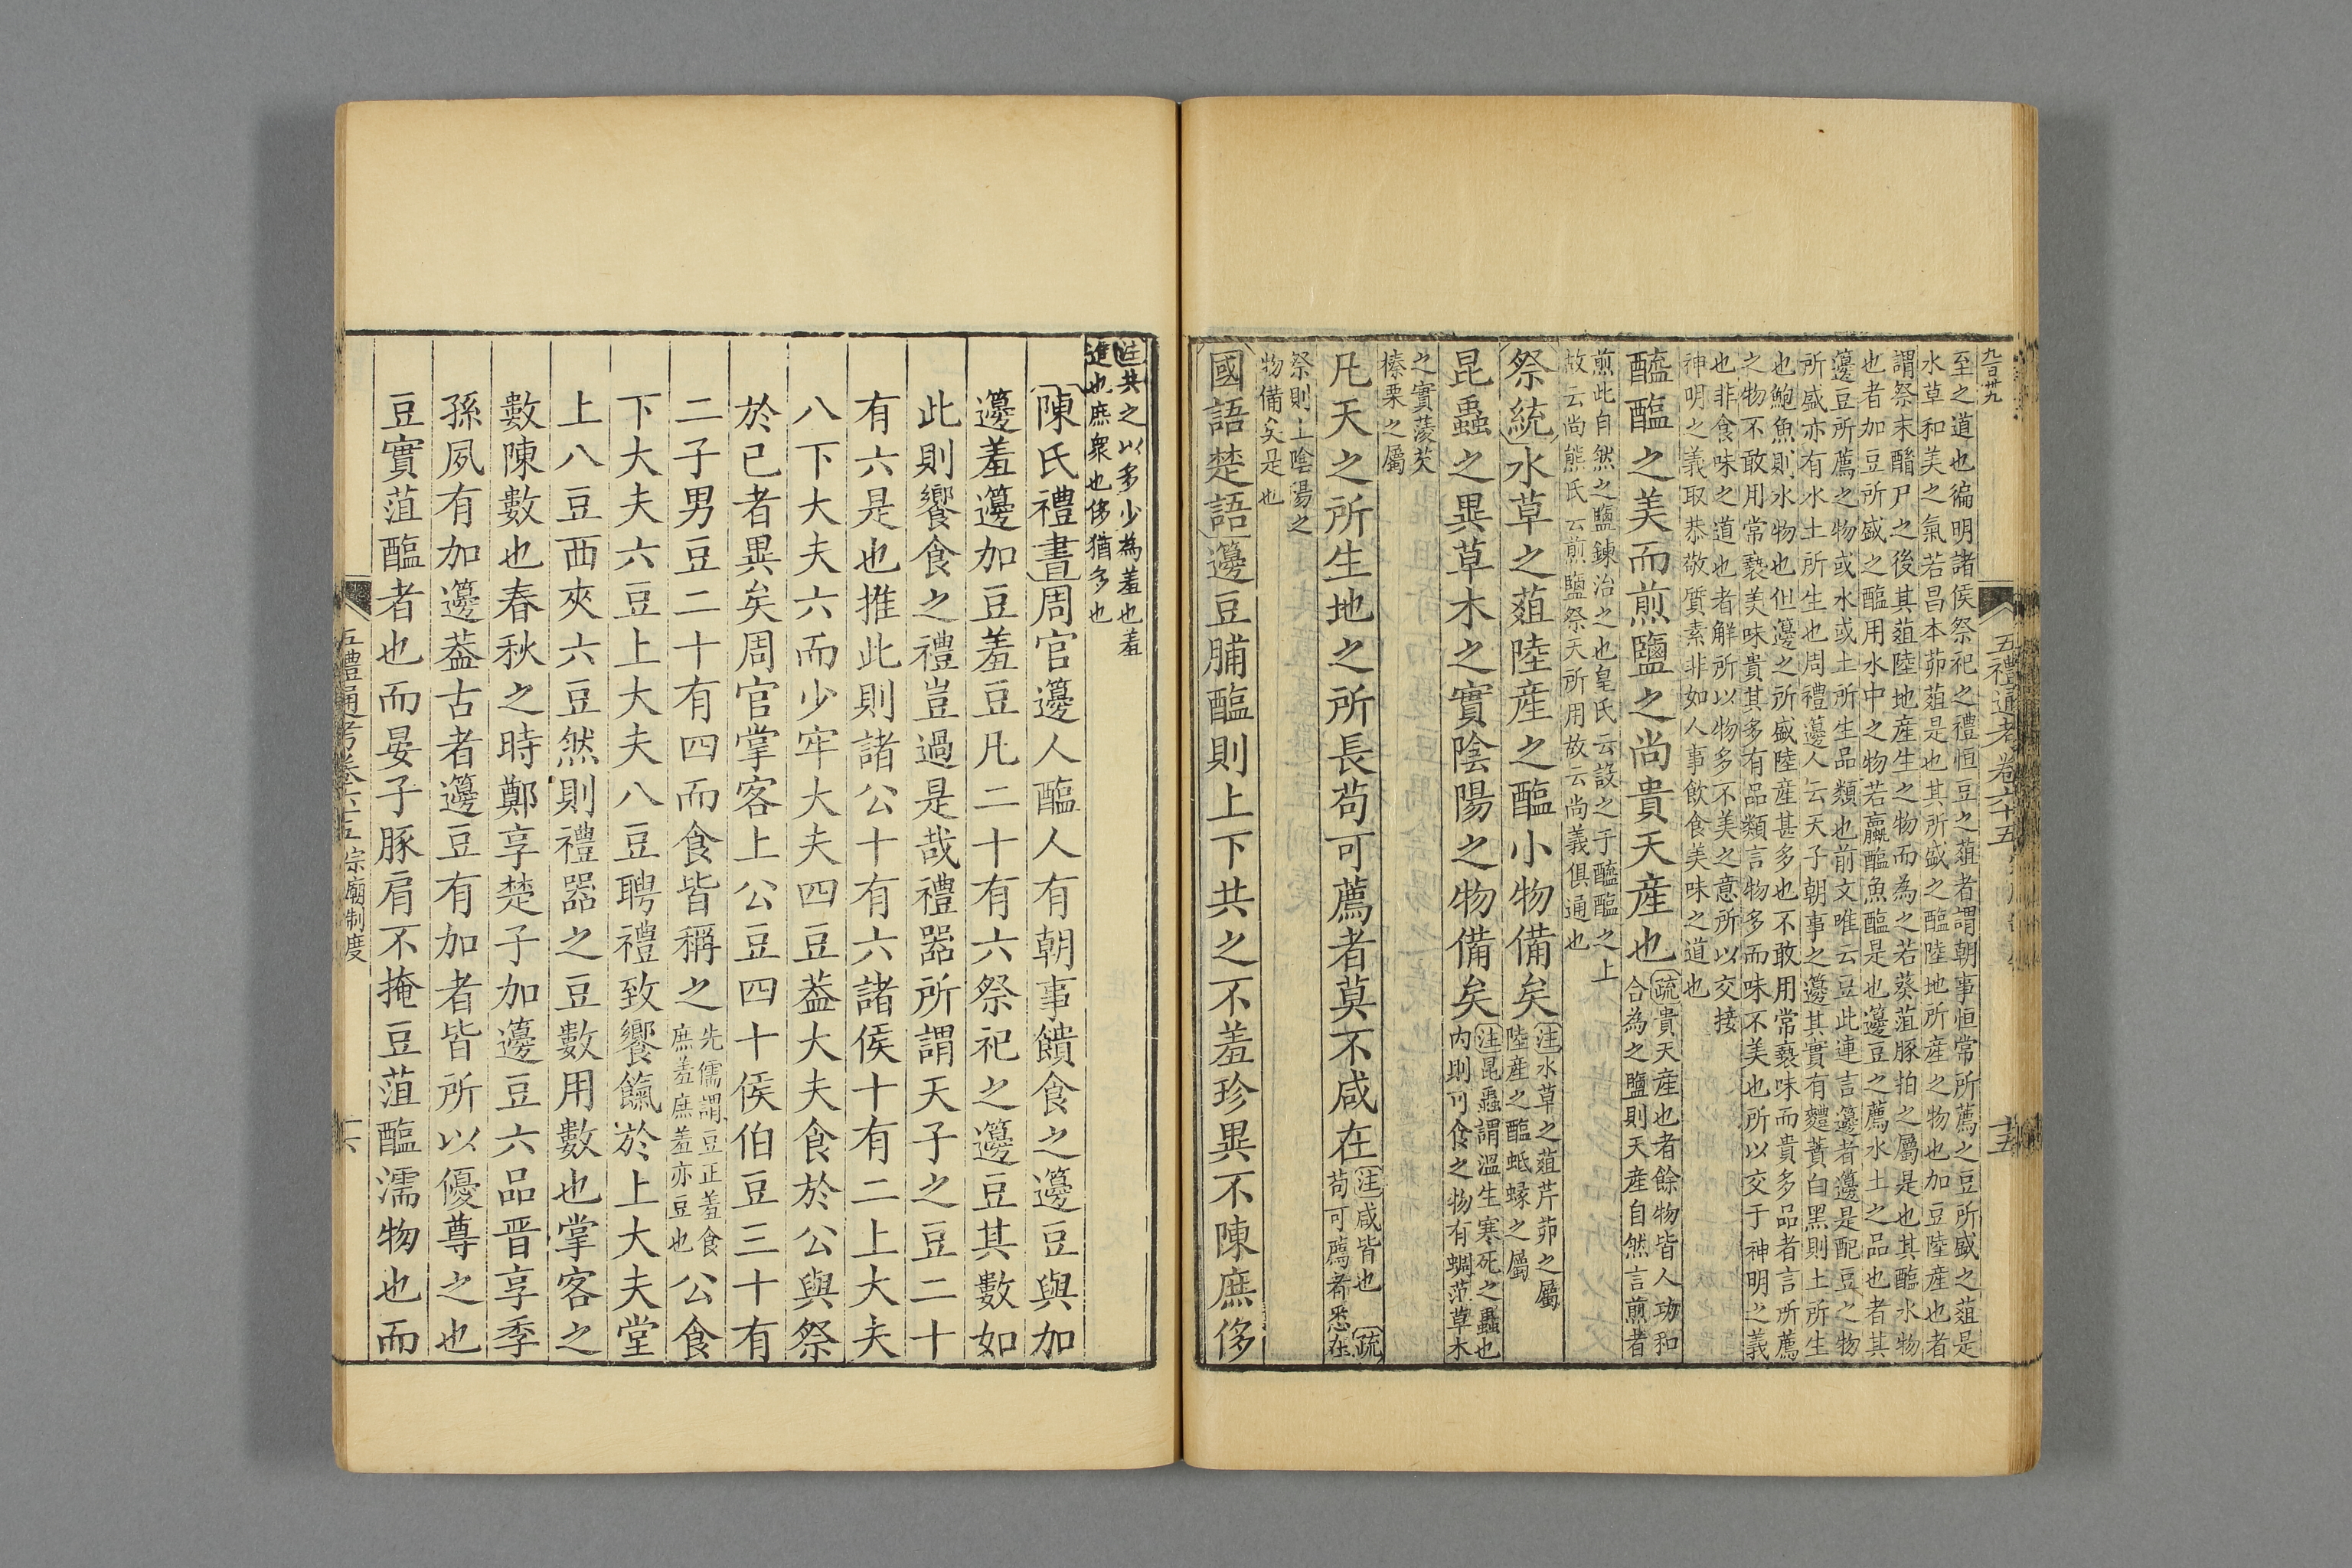 五禮通考 卷六十五
十五
至之道也徧明諸侯祭祀之禮恒豆之葅者謂朝事恒常所薦之豆所盛之葅是
水草和美之氣若昌本茆葅是也其所盛之醢陸地所產之物也加豆陸產也者
謂祭末酳尸之後其葅陸地產生之物而為之若葵菹豚拍之屬是也其醢水物
也者加豆所盛之醢用水中之物若蠃醢魚醢是也籩豆之薦水土之品也者其
籩豆所薦之物或水或土所生品類也前文唯云豆此連言籩者籩是配豆之物
所盛亦有水土所生也周禮籩人云天子朝事之籩其實有麷蕡白黑則土所生
也鮑魚則水物也但籩之所盛陸產甚多也不敢用常褻味而貴多品者言所薦
之物不敢用常褻美味貴其多有品類言物多而味不美也所以交于神明之義
也非食味之道也者解所以物多不美之意所以交接
神明之義取恭敬質素非如人事飲食美味之道也
醯醢之美而煎鹽之尚貴天產也疏貴天產也者餘物皆人功和
合為之鹽則天產自然言煎者
煎此自然之鹽鍊治之也皇氏云設之于醯醢之上
故云尚熊氏云煎鹽祭天所用故云尚義俱通也
祭統水草之葅陸產之醢小物備矣注水草之葅芹茆之屬
陸產之醢蚳蝝之屬
昆蟲之異草木之實陰陽之物備矣注昆蟲謂溫生寒死之蟲也
內則可食之物有蜩范草木
之實蔆芡
榛栗之屬
凡天之所生地之所長苟可薦者莫不咸在注咸皆也 疏
苟可薦者悉在
祭則上陰陽之
物備矣是也
國語楚語籩豆脯醢則上下共之不羞珍異不陳庶侈
注共之以多少為羞也羞
進也庶衆也侈猶多也
陳氏禮書周官籩人醢人有朝事饋食之籩豆與加
籩羞籩加豆羞豆凡二十有六祭祀之籩豆其數如
此則饗食之禮豈過是哉禮器所謂天子之豆二十
有六是也推此則諸公十有六諸侯十有二上大夫
八下大夫六而少牢大夫四豆葢大夫食於公與祭
於己者異矣周官掌客上公豆四十侯伯豆三十有
二子男豆二十有四而食皆稱之先儒謂豆正羞食
庶羞庶羞亦豆也公食
下大夫六豆上大夫八豆聘禮致饗餼於上大夫堂
上八豆西夾六豆然則禮器之豆數用數也掌客之
數陳數也春秋之時鄭享楚子加籩豆六品晋享季
孫夙有加籩葢古者籩豆有加者皆所以優尊之也
豆實菹醢者也而晏子豚肩不掩豆菹醢濡物也而
五禮通考卷六十五 宗廟制度
十六